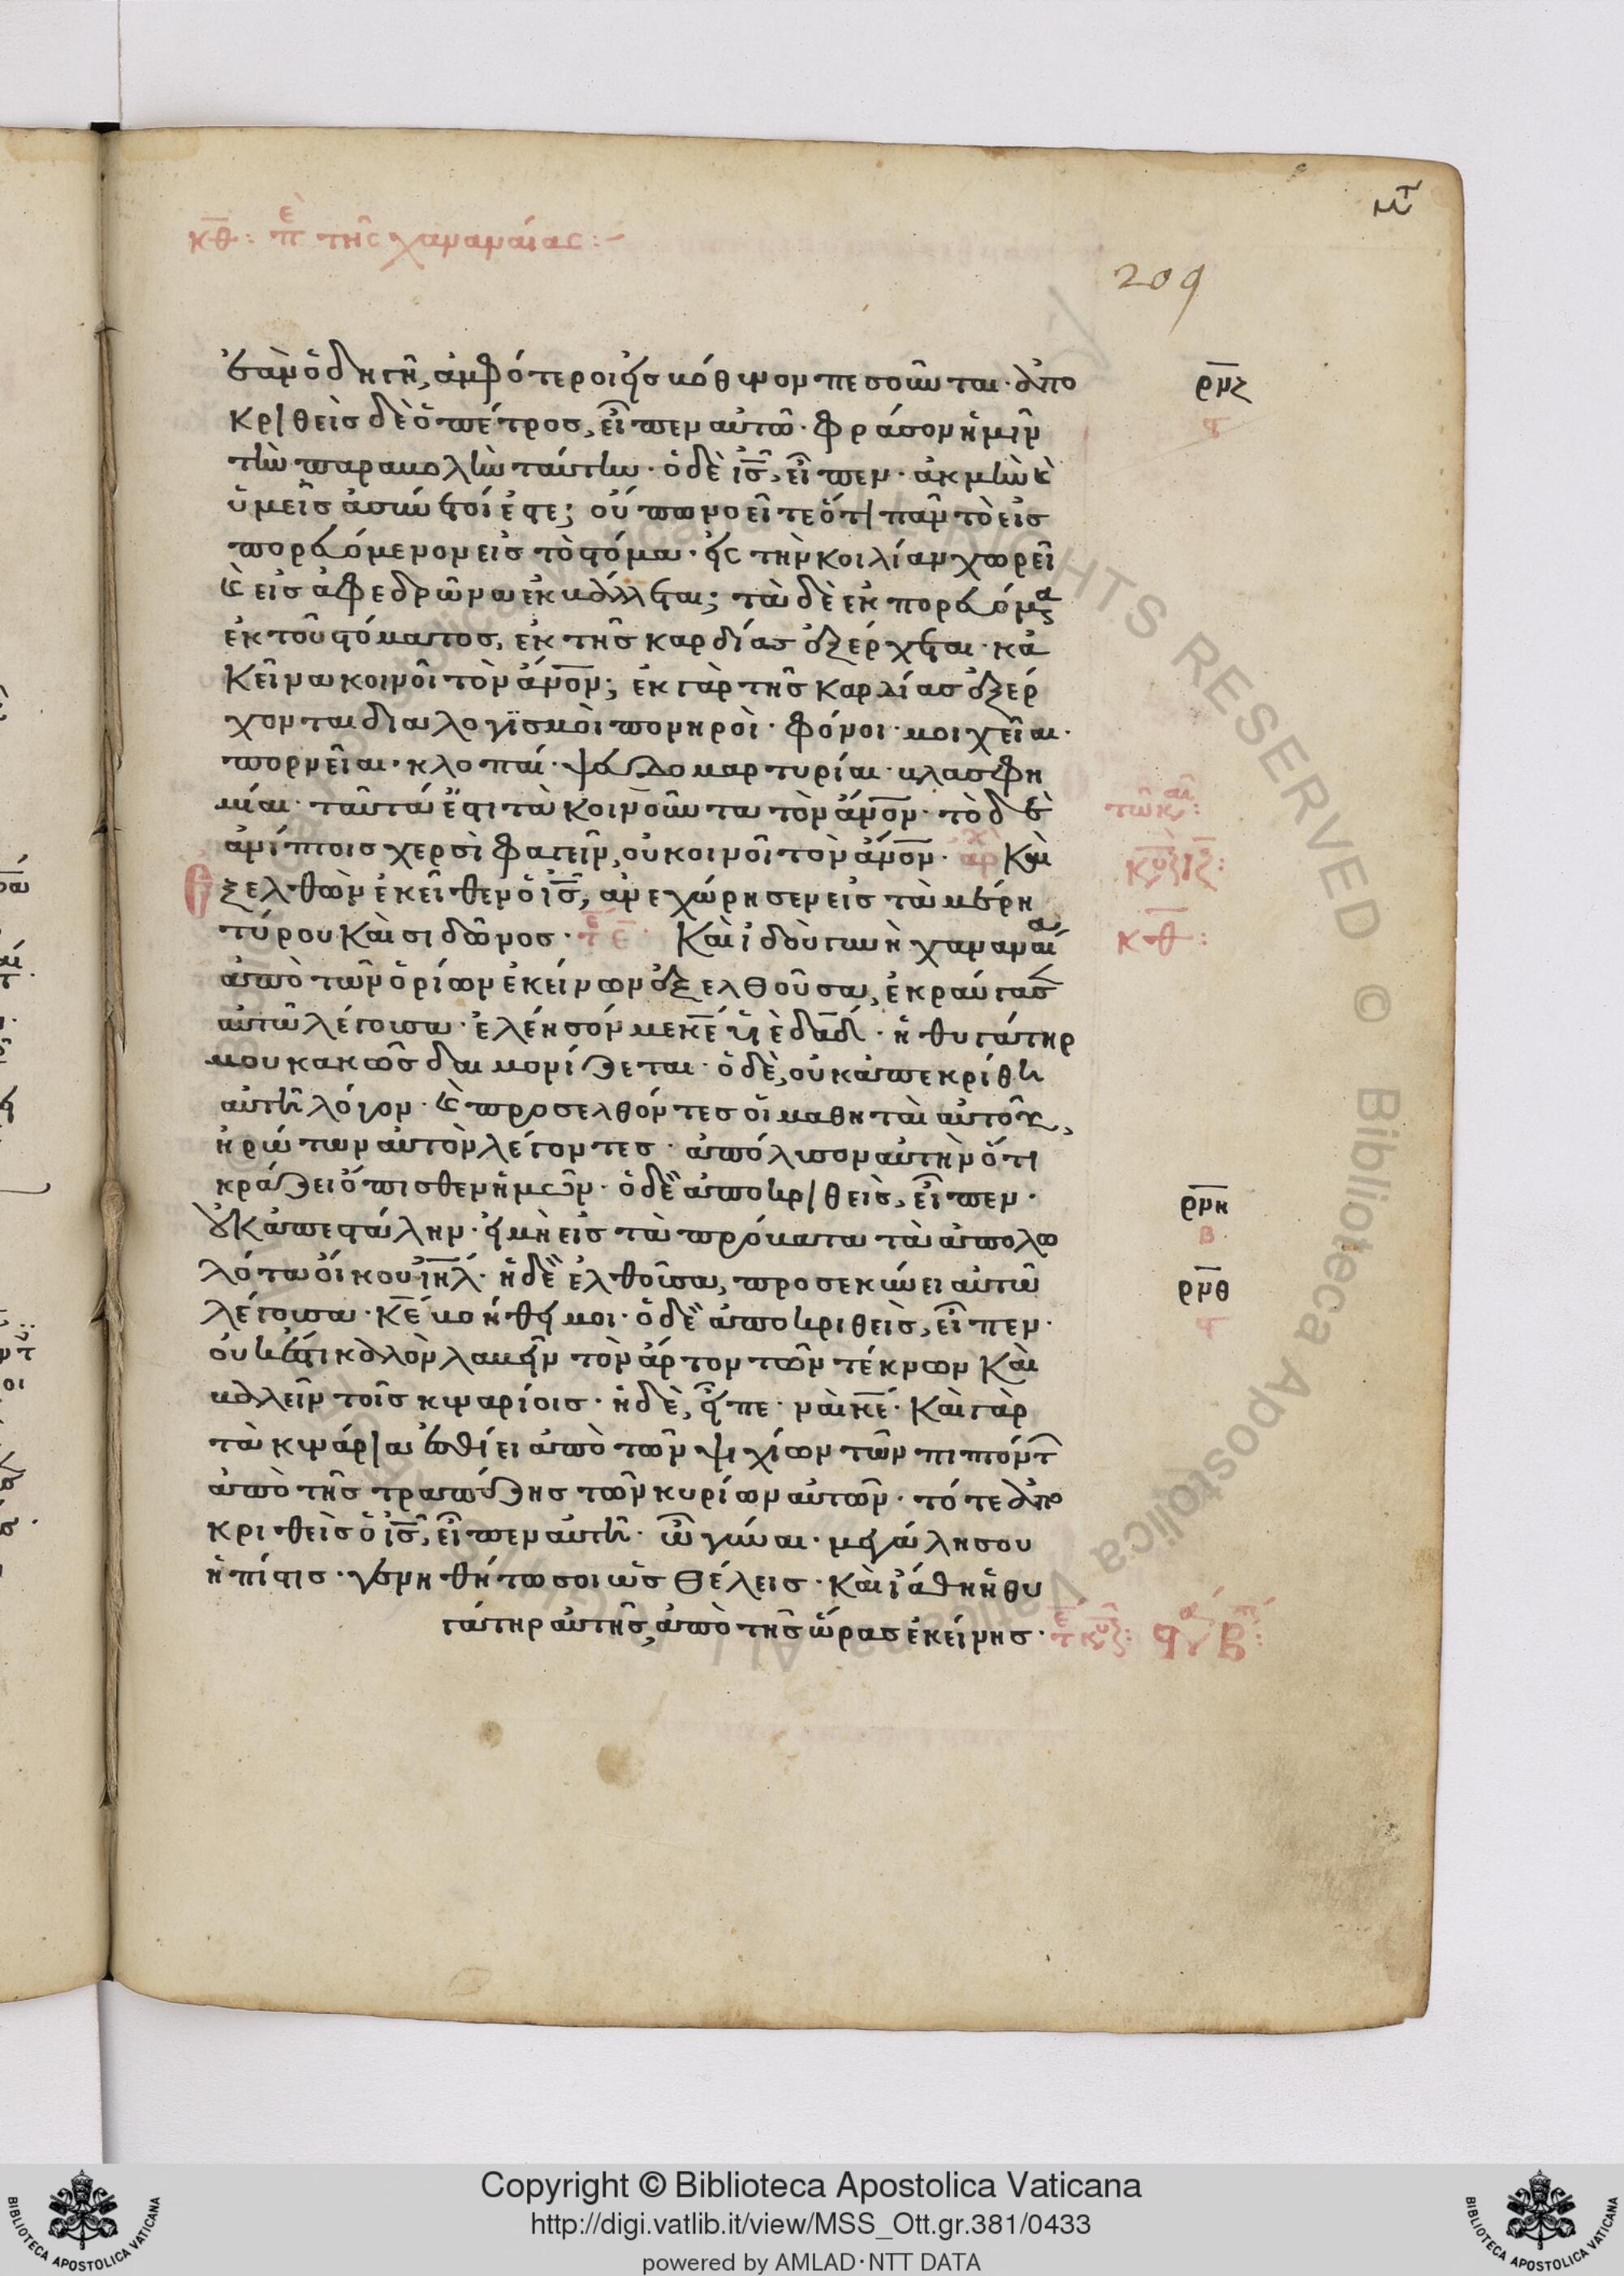 κθ: πὲ τῆς χαναναίας:-
μτ
209
ἐὰν ὁδηγῆ, ἀμφότεροι εἰς βόθυνον πεσοῦνται· ἀπο
ρμζ
κριθεὶς δὲ ὁ πέτρος, εἶπεν αὐτῶ· φράσον ἡμῖν
τὴν παραβολὴν ταύτην· ὁ δὲ ις, εἶπεν· ἀκμὴν κ
ὑμεῖς ἀσύνετοί ἐστε; οὔπω νοεῖτε ὅτι πᾶν τὸ εἰσ
πορευόμενον εἰς τὸ στόμα· εἰς τὴν κοιλίαν χωρεῖ
κ εἰς ἀφεδρῶνα ἐκβάλλεται; τὰ δὲ ἐκπορευόμενα
ἐκ τοῦ στόματος, ἐκ τῆς καρδίας ἐξέρχεται· κἀ
κεῖνα κοινοῖ τὸν ἄνον; ἐκ γὰρ τῆς καρδίας ἐξέρ
χονται διαλογϊσμοὶ πονηροὶ· φόνοι· μοιχεῖαι·
πορνεῖαι· κλοπαί· ψευδομαρτυρίαι· βλασφη
μίαι· ταῦτά ἔστι τὰ κοινοῦντα τὸν ἄνον· τὸ δὲ
ἀνίπτοις χερσὶ φαγεῖν, οὐ κοινοῖ τὸν ἄνον· Καὶ
ἐξελθὼν ἐκεῖθεν ὁ ις, ἀνεχώρησεν εἰς τὰ μέρη
τύρου Καὶ σιδῶνος· Καὶ ἰδοὺ γυνὴ χαναναία
κθ:
ἀπὸ τῶν ὁρίων ἐκείνων ἐξελθοῦσα, ἐκραύγασεν
αὐτῶ λέγουσα· ἐλέησόν με κε υἱὲ δαδ· ἡ θυγάτηρ
μου κακῶς δαιμονίζεται· ὁ δὲ, οὐκ ἀπεκρίθη
αὐτῆ λόγον· κ προσελθόντες οἱ μαθηταὶ αὐτοῦ,
ἠρώτων αὐτὸν λέγοντες· ἀπόλυσον αὐτὴν ὅτι
κράζει ὄπισθεν ἡμῶν· ὁ δὲ ἀποκριθεὶς, εἶπεν·
ρμη
οὐκ ἀπεστάλην· εἰ μὴ εἰς τὰ πρόβατα τὰ ἀπολω
β
λότα οἴκου ιηλ· ἡ δὲ ἐλθοῦσα, προσεκύνει αὐτῶ
ρμθ
λέγουσα· κε βοήθει μοι· ὁ δὲ ἀποκριθεὶς, εἶπεν·
οὐκ ἔστι καλὸν λαβεῖν τὸν ἄρτον τῶν τέκνων Καὶ
βαλεῖν τοῖς κυναρίοις· ἡ δὲ, εἶπε· ναὶ κε· Καὶ γὰρ
τὰ κυνάρια ἐσθίει ἀπὸ τῶν ψιχίων τῶν πιπτόντων
ἀπὸ τῆς τραπέζης τῶν κυρίων αὐτῶν· τότε ἀπο
κριθεὶς ὁ ις, εἶπεν αὐτῆ· ὦ γύναι· μεγάλη σου
ἡ πίστις· γενηθήτω σοι ὡς θέλεις· καὶ ἰάθη ἡ θυ
γάτηρ αὐτῆς, ἀπὸ τῆς ὥρας ἐκείνης·
Copyright © Biblioteca Apostolica Vaticana
http://digi.vatlib.it/view/MSS_Ott.gr.381/0433
powered by AMLAD·NTT DATA
BIBLIOTECA APOSTOLICA VATICANA
BIBLIOTECA APOSTOLICA VATICANA